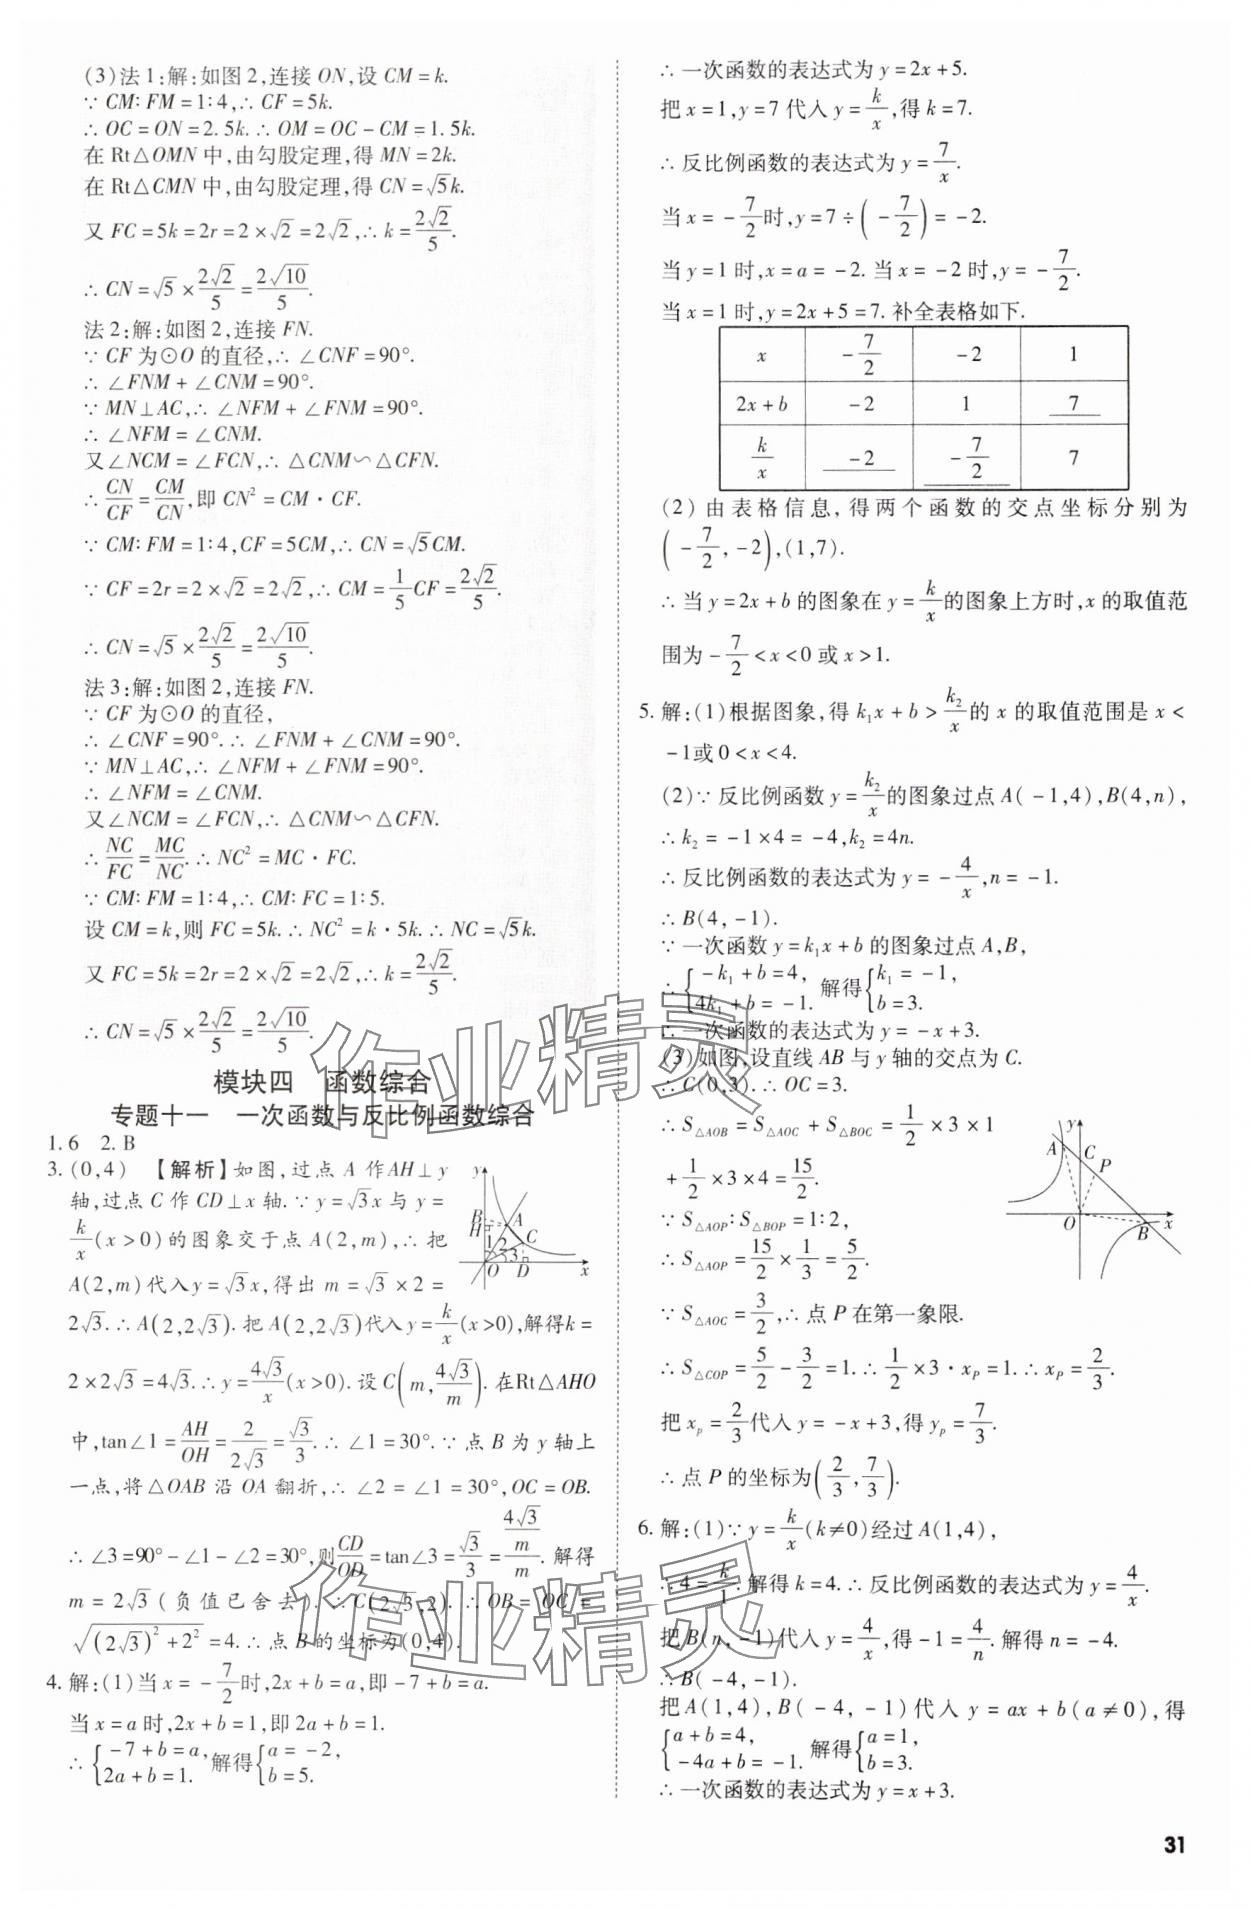 (3)法1:解:如图2,连接ON,设CM=k.
∵CM∶FM=1∶4,∴CF=5k.
∴OC=ON=2.5k.∴OM=OC-CM=1.5k.
在Rt△OMN中,由勾股定理,得MN=2k.
在Rt△CMN中,由勾股定理,得CN=√5k.
又FC=5k=2r=2×√2=2√2,∴k=2√2/5.
∴CN=√5×2√2/5=2√10/5.
法2:解:如图2,连接FN.
∵CF为⊙O的直径,∴∠CNF=90°.
∴∠FNM+∠CNM=90°.
∵MN⊥AC,∴∠NFM+∠FNM=90°.
∴∠NFM=∠CNM.
又∠NCM=∠FCN,∴△CNM∽△CFN.
∴CN/CF=CM/CN,即CN²=CM·CF.
∵CM∶FM=1∶4,CF=5CM,∴CN=√5CM.
∵CF=2r=2×√2=2√2,∴CM=1/5CF=2√2/5.
∴CN=√5×2√2/5=2√10/5.
法3:解:如图2,连接FN.
∵CF为⊙O的直径,
∴∠CNF=90°.∴∠FNM+∠CNM=90°.
∵MN⊥AC,∴∠NFM+∠FNM=90°.
∴∠NFM=∠CNM.
又∠NCM=∠FCN,∴△CNM∽△CFN.
∴NC/FC=MC/NC.∴NC²=MC·FC.
∵CM∶FM=1∶4,∴CM∶FC=1∶5.
设CM=k,则FC=5k.∴NC²=k·5k.∴NC=√5k.
又FC=5k=2r=2×√2=2√2,∴k=2√2/5.
∴CN=√5×2√2/5=2√10/5.
模块四 函数综合
专题十一 一次函数与反比例函数综合
1.6 2.B
3.(0,4) 【解析】如图,过点A作AH⊥y
轴,过点C作CD⊥x轴.∵y=√3x与y=
k/x(x>0)的图象交于点A(2,m),∴把
A(2,m)代入y=√3x,得出m=√3×2=
2√3.∴A(2,2√3).把A(2,2√3)代入y=k/x(x>0),解得k=
2×2√3=4√3.∴y=4√3/x(x>0).设C(m,4√3/m).在Rt△AHO
中,tan∠1=AH/OH=2/2√3=√3/3.∴∠1=30°.∵点B为y轴上
一点,将△OAB沿OA翻折,∴∠2=∠1=30°,OC=OB.
∴∠3=90°-∠1-∠2=30°,则CD/OD=tan∠3=√3/3=(4√3/m)/m.解得
m=2√3(负值已舍去).∴C(2√3,2).∴OB=OC=
√((2√3)²+2²)=4.∴点B的坐标为(0,4).
y
B
H
A
C
1
2
3
O
D
x
4.解:(1)当x=-7/2时,2x+b=a,即-7+b=a.
当x=a时,2x+b=1,即2a+b=1.
∴{-7+b=a, 2a+b=1. 解得{a=-2, b=5.
∴一次函数的表达式为y=2x+5.
把x=1,y=7代入y=k/x,得k=7.
∴反比例函数的表达式为y=7/x.
当x=-7/2时,y=7÷(-7/2)=-2.
当y=1时,x=a=-2.当x=-2时,y=-7/2.
当x=1时,y=2x+5=7.补全表格如下.
x -7/2 -2 1
2x+b -2 1 7
k/x -2 -7/2 7
(2)由表格信息,得两个函数的交点坐标分别为
(-7/2,-2),(1,7).
∴当y=2x+b的图象在y=k/x的图象上方时,x的取值范
围为-7/2<x<0或x>1.
5.解:(1)根据图象,得k₁x+b>k₂/x的x的取值范围是x<
-1或0<x<4.
(2)∵反比例函数y=k₂/x的图象过点A(-1,4),B(4,n),
∴k₂=-1×4=-4,k₂=4n.
∴反比例函数的表达式为y=-4/x,n=-1.
∴B(4,-1).
∵一次函数y=k₁x+b的图象过点A,B,
∴{-k₁+b=4, 4k₁+b=-1. 解得{k₁=-1, b=3.
∴一次函数的表达式为y=-x+3.
(3)如图,设直线AB与y轴的交点为C.
∴C(0,3).∴OC=3.
∴S△AOB=S△AOC+S△BOC=1/2×3×1
+1/2×3×4=15/2.
∵S△AOP∶S△BOP=1∶2,
∴S△AOP=15/2×1/3=5/2.
∵S△AOC=3/2,∴点P在第一象限.
∴S△COP=5/2-3/2=1.∴1/2×3·xP=1.∴xP=2/3.
把xp=2/3代入y=-x+3,得yp=7/3.
∴点P的坐标为(2/3,7/3).
y
A
C
P
O
B
x
6.解:(1)∵y=k/x(k≠0)经过A(1,4),
∴4=k/1.解得k=4.∴反比例函数的表达式为y=4/x.
把B(n,-1)代入y=4/x,得-1=4/n.解得n=-4.
∴B(-4,-1).
把A(1,4),B(-4,-1)代入y=ax+b(a≠0),得
{a+b=4, -4a+b=-1. 解得{a=1, b=3.
∴一次函数的表达式为y=x+3.
作业精灵
作业精灵
31